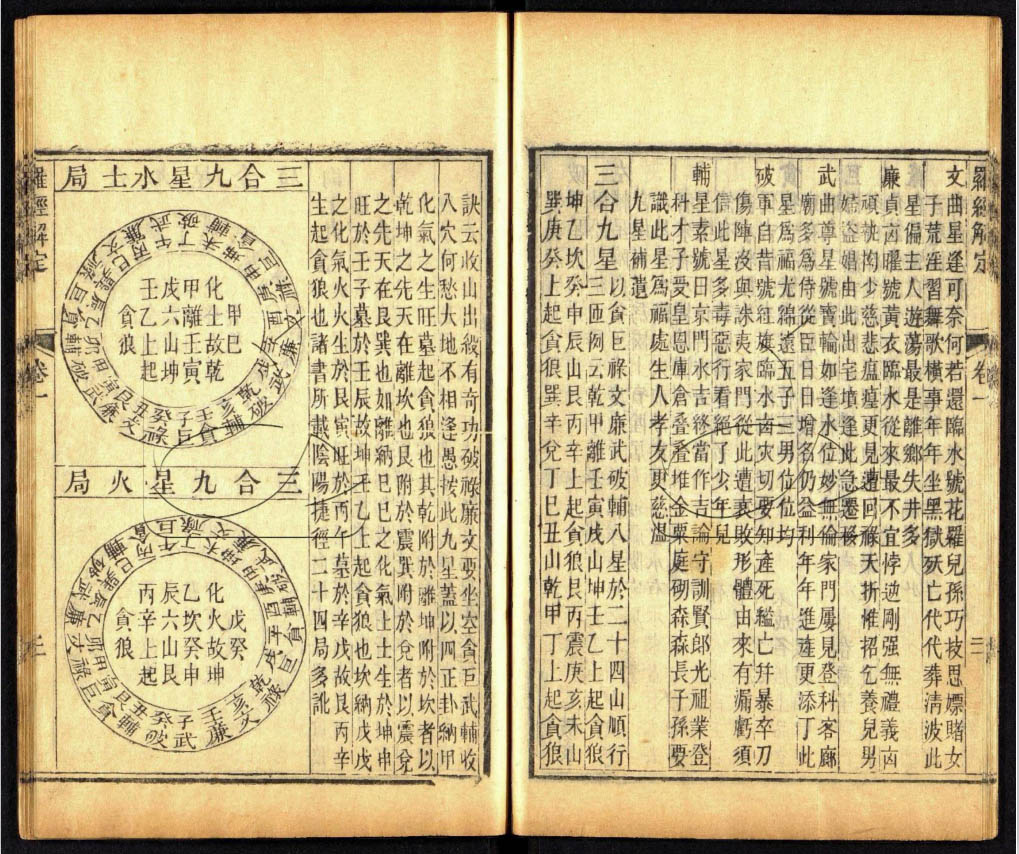 羅經解定
卷一
三
文曲星逢可奈何若還臨水號花羅兒孫巧技思嫖賭女
子荒淫習舞歌橫事年年坐黑獄死亡代代葬清波此
星偏主人遊蕩最是離鄉失井多
廉貞凶曜號黃衣臨水從來最不宜悖逆剛強無禮義凶
頑執拘少慈悲瘟㾮更見遭回祿天折惟招乞養兒男
嫖盜娼由此出宅墳逢此急遷移
武曲尊星號寶輪如逢水位妙無倫家門屢見登科客廊
廟多為侍從臣日日增名仍益利年年進產更添丁此
星為福尤綿遠五子三男位位均
破軍自昔號紅旗臨水凶灾切要知產死縊亡并暴卒刀
傷陣沒與誅夷家門從此遭衰敗形體由來有漏虧須
信此星多毒惡行看絕了少年兒
輔星素號日京門水吉終當作吉論守訓賢郎光祖業登
科才子受皇恩庫倉叠叠堆金粟庭砌森森長子孫要
識此星為福處生人孝友更慈溫
九星補遺
三合九星三匝例云乾甲離壬寅戌山坤壬乙上起貪狼
坤乙坎癸申辰山艮丙辛上起貪狼艮丙震庚亥未山
巽庚癸上起貪狼巽辛兌丁巳丑山乾甲丁上起貪狼
以貪巨祿文廉武破輔八星於二十四山順行
訣云收山出殺有奇功破祿廉文要坐空貪巨武輔收
入穴何愁大地不相逢愚按此九星蓋以四正卦納甲
化氣之生旺墓起貪狼也其乾附於離坤附於坎者以
乾坤之先天在離坎也艮附於震巽附於兌者以震兌
之先天在艮巽也如離納巳巳之化氣土土生於坤申
旺於壬子墓於壬辰故坤壬乙上起貪狼也坎納戊戊
之化氣火火生於艮寅旺於丙午墓於辛戌故艮丙辛
生起貪狼也諸書所載陰陽捷徑二十四局多訛
三合九星水土局
甲巳
化土故乾
甲離壬寅
戌六山坤
壬乙上起
貪狼
三合九星火局
戊癸
化火故坤
乙坎癸申
辰六山艮
丙辛上起
貪狼
羅經解定
卷一